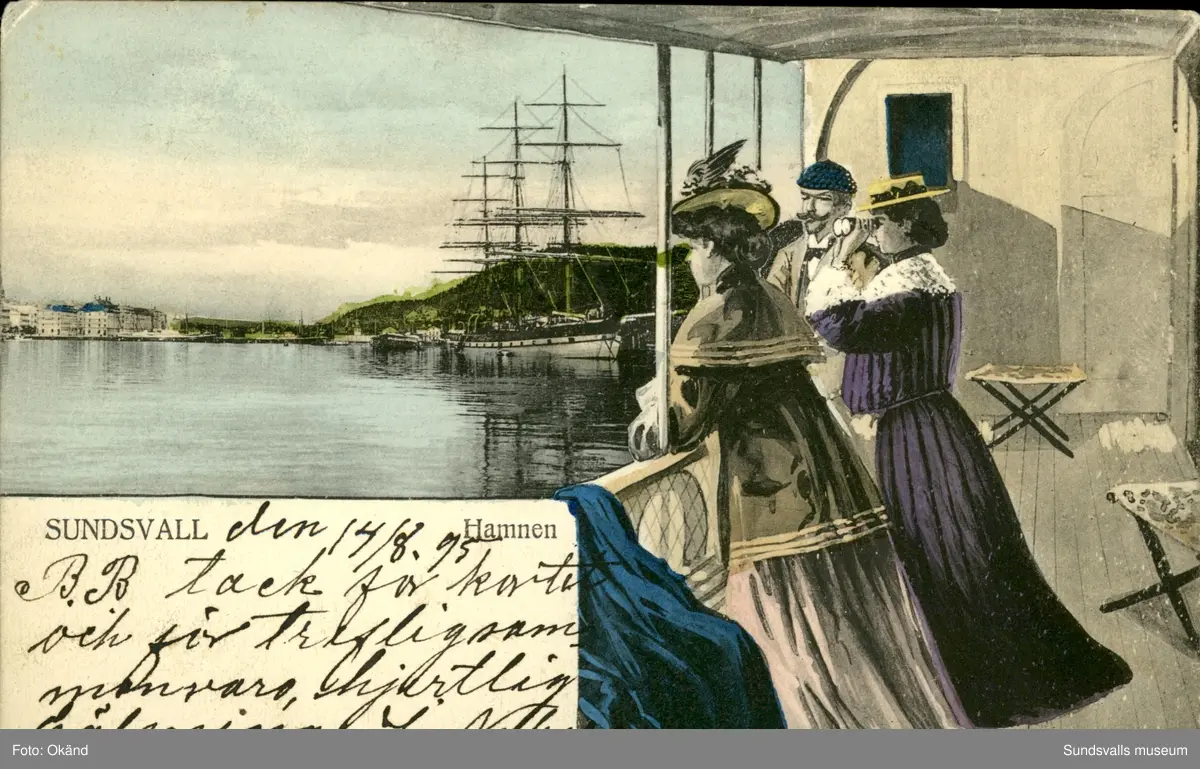 SUNDSVALL den 14/8. 95 Hamnen
B.B tack för kortet
och för treflig sam
manvaro, hjertlig
Foto: Okänd
Sundsvalls museum